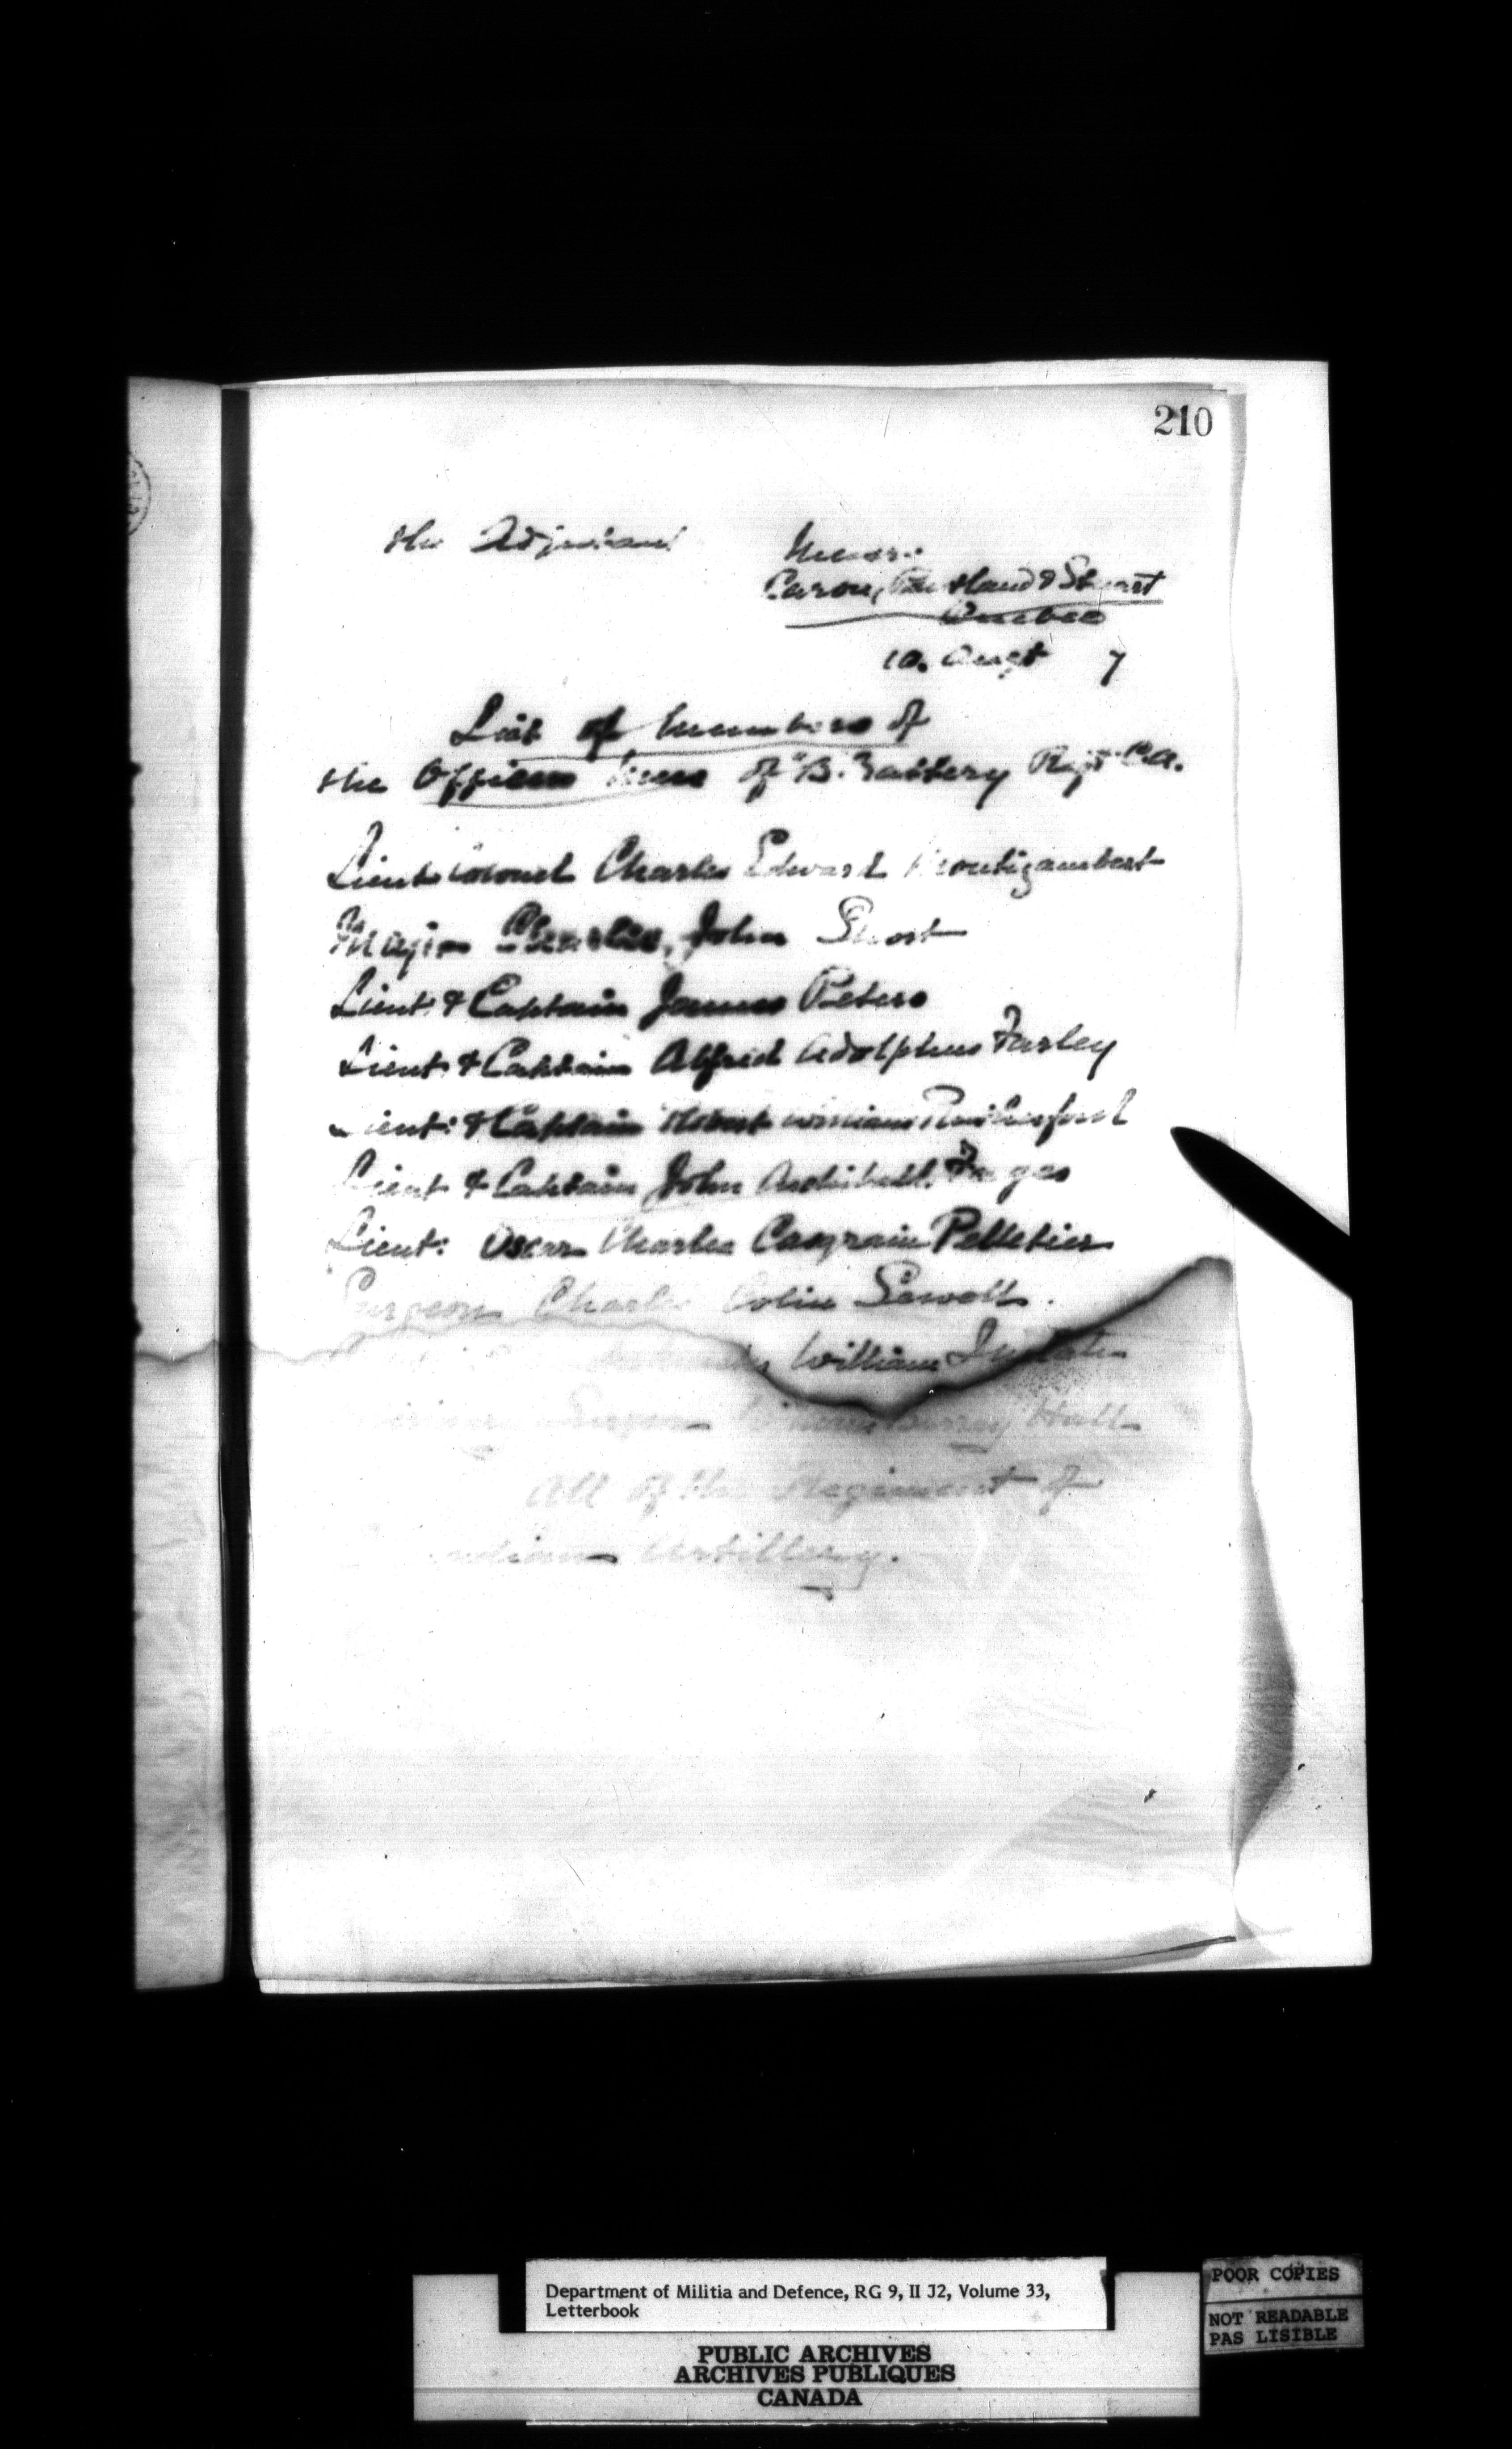 210
the Adjutant
Messrs.
Caron, Pentland & Stuart
Quebec
10. Augt 7
List of members of
the Officers Mess of "B. Battery Regt C.A.
Lieut Colonel Charles Edward Montizambert
Major Charles, John Short
Lieut: & Captain James Peters
Lieut & Captain Alfred Adolphus Farley
Lieut: & Captain Robert William Rutherford
Lieut & Captain John Archibald. Fages
Lieut: Oscar Charles Casgrain Pelletier
Surgeon Charles Colin Sewell.
William
Surgeon Hall
All of the Regiment of
Canadian Artillery.
Department of Militia and Defence, RG 9, II J2, Volume 33,
Letterbook
PUBLIC ARCHIVES
ARCHIVES PUBLIQUES
CANADA
POOR COPIES
NOT READABLE
PAS LISIBLE